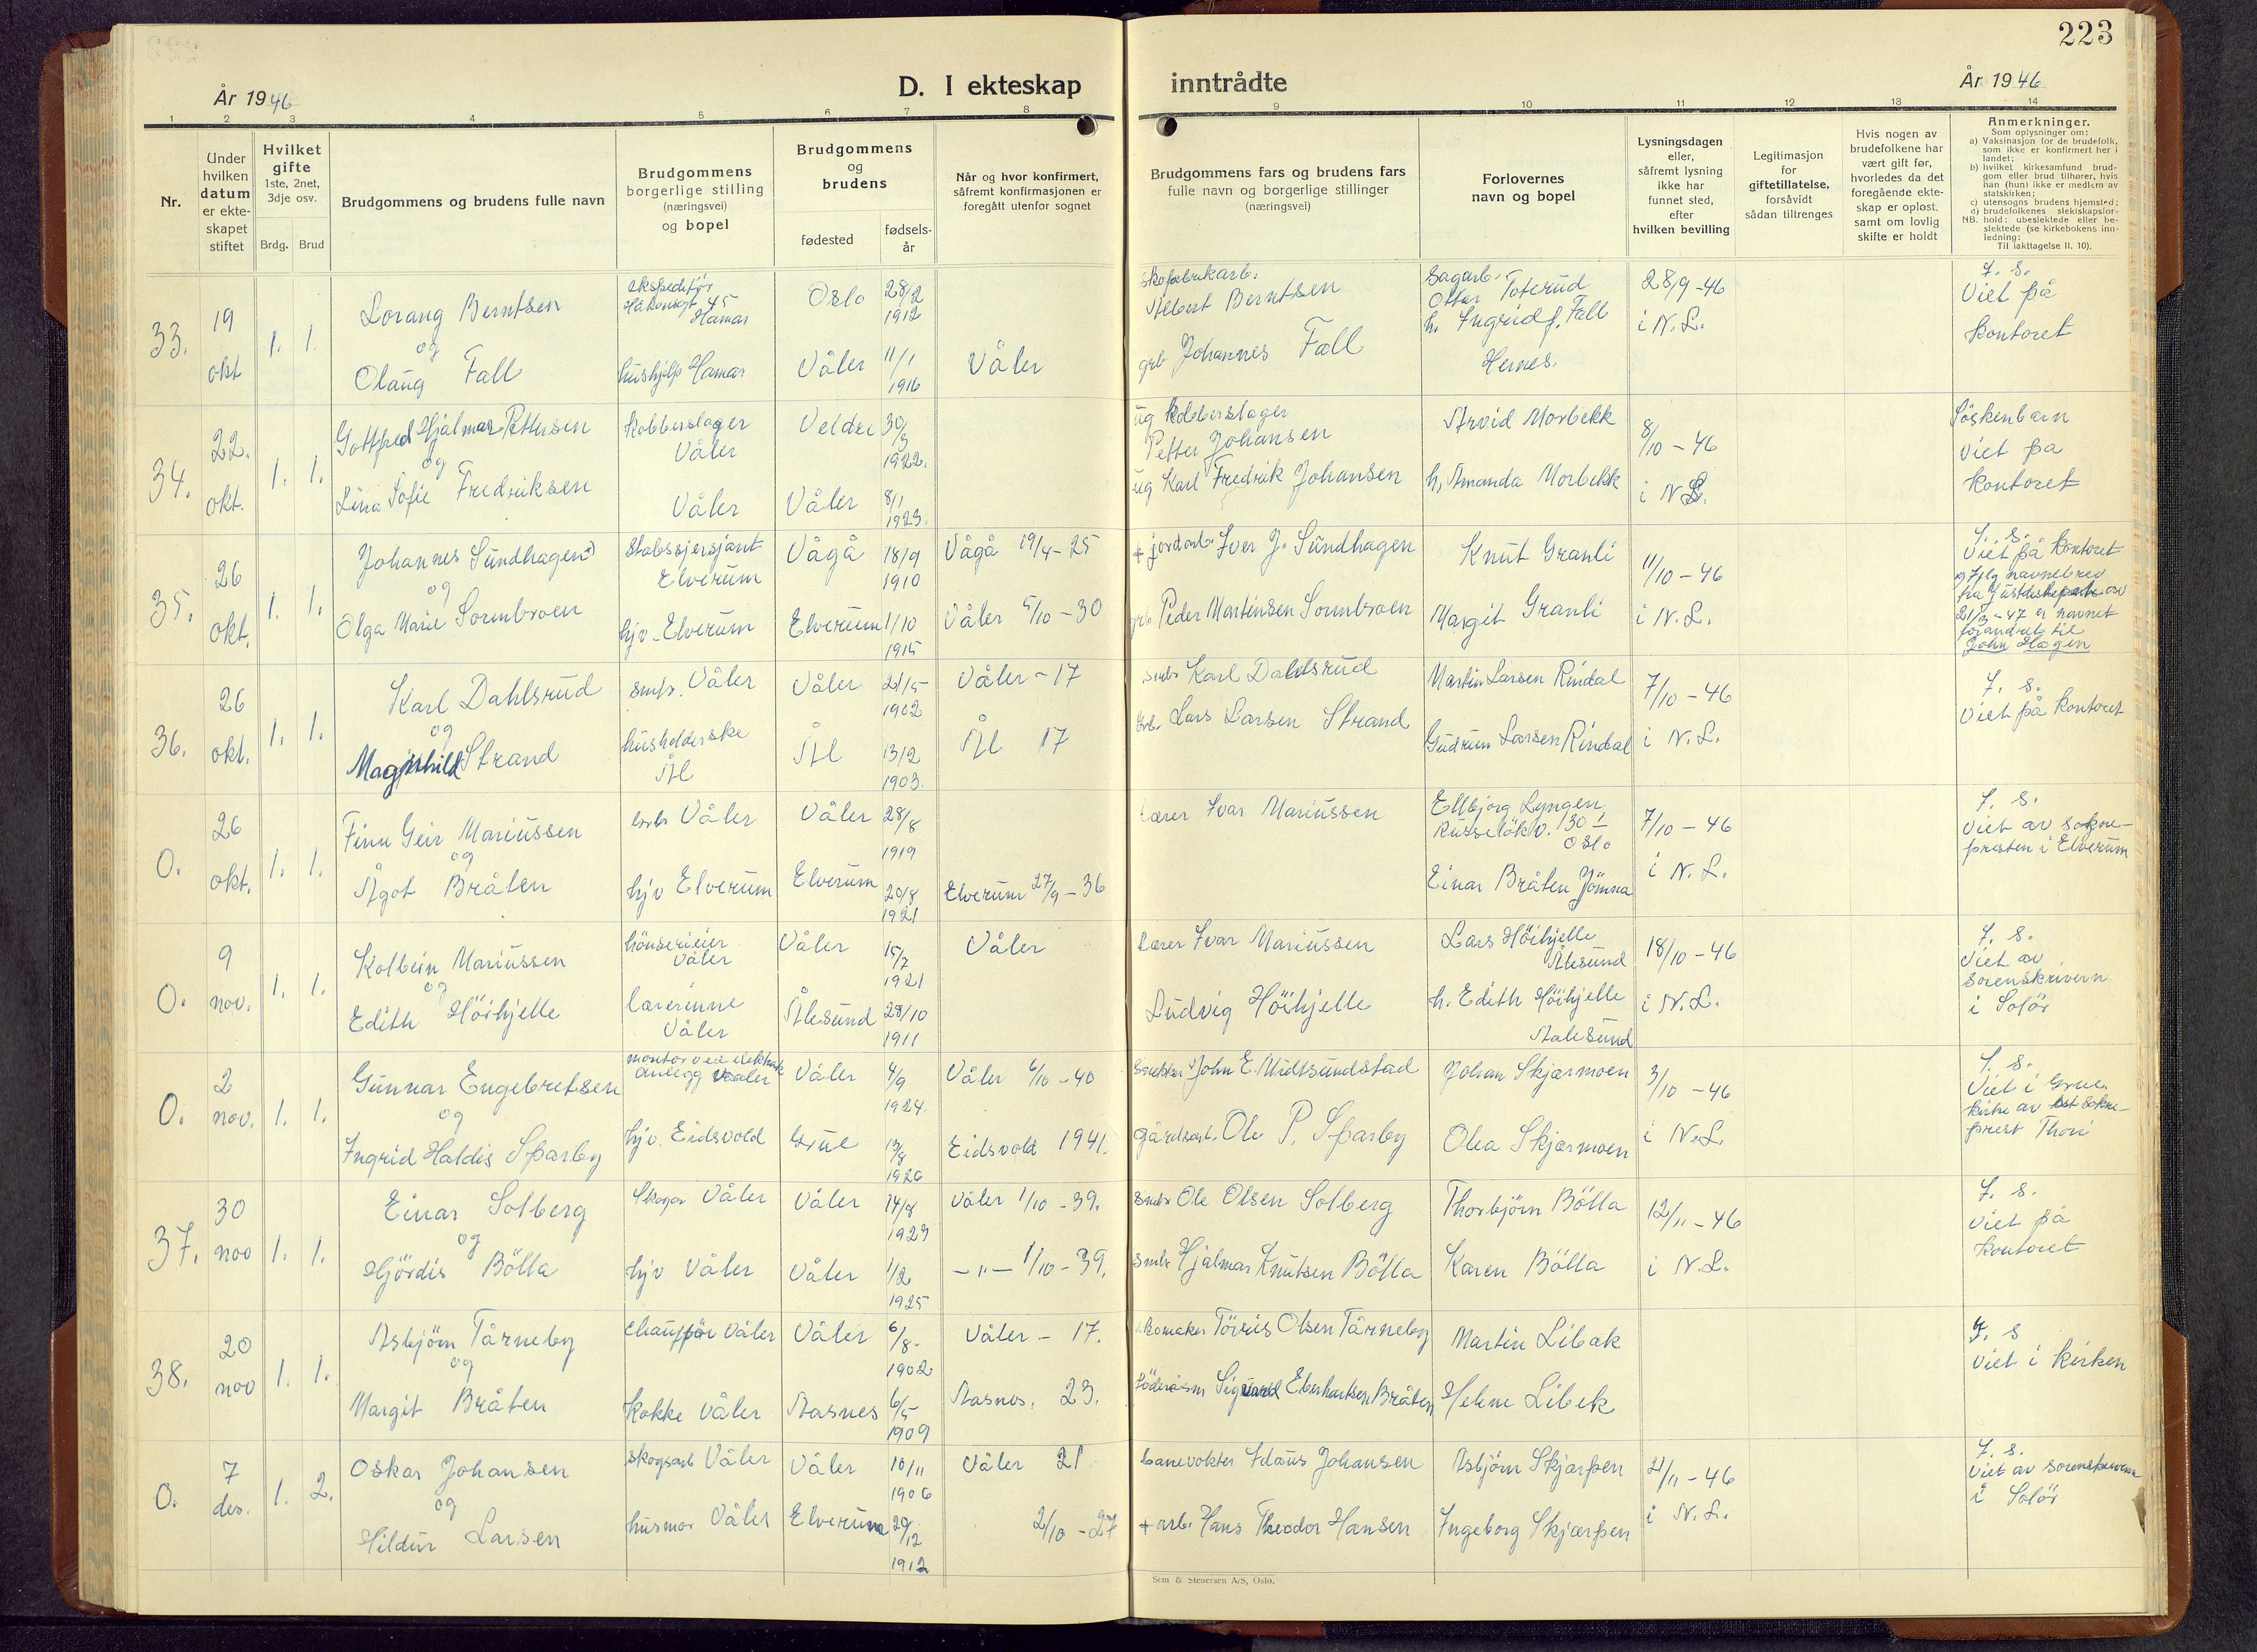 223
År 1946
D. I ekteskap
inntrådte
År 1946
1 2 3 4 5 6 7 8 9 10 11 12 13 14
Nr.
Under
hvilken
datum
er ekte-
skapet
stiftet
Hvilket
gifte
1ste, 2net,
3dje osv.
Brdg. Brud
Brudgommens og brudens fulle navn
Brudgommens
borgerlige stilling
(næringsvei)
og bopel
Brudgommens
og
brudens
fødested
fødsels-
år
Når og hvor konfirmert,
såfremt konfirmasjonen er
foregått utenfor sognet
Brudgommens fars og brudens fars
fulle navn og borgerlige stillinger
(næringsvei)
Forlovernes
navn og bopel
Lysningsdagen
eller,
såfremt lysning
ikke har
funnet sted,
efter
hvilken bevilling
Legitimasjon
for
giftetillatelse,
forsåvidt
sådan tiltrenges
Hvis nogen av
brudefolkene har
vært gift før,
hvorledes da det
foregående ekte-
skap er opløst,
samt om lovlig
skifte er holdt
Anmerkninger.
Som oplysninger om:
a) Vaksinasjon for de brudefolk,
som ikke er konfirmert her i
landet;
b) hvilket kirkesamfund brud-
gom eller brud tilhører, hvis
han (hun) ikke er medlem av
statskirken;
c) utensogns brudens hjemsted;
d) brudefolkenes slektskapsfor-
NB. hold: ubeslektede eller be-
slektede (se kirkebokens inn-
ledning:
Til iakttagelse II. 10).
33.
19
okt
1. 1.
Lorang Berntsen
og
Olaug Fall
ekspeditør
Håkonsgt 45
Hamar
hushjelp Hamar
Oslo
28/2
1912
Våler
11/1
1916
Våler
skofabrikarb.
Albert Berntsen
grb Johannes Fall
Sagarb.
Ottar Toterud
h. Ingrid f. Fall
Hernes.
28/9-46
i N.L.
f. s.
Viet på
kontoret
34.
22.
okt.
1. 1.
Gottfred Hjalmar Pettersen
og
Lina Sofie Fredriksen
Kobberslager
Våler
Våler
Veldre
30/3
1922.
Våler
8/1
1923.
ug kobberslager
Petter Johansen
ug Karl Fredrik Johansen
Arvid Morbekk
h. Amanda Morbekk
8/10-46
i N.L.
Söskenbarn
viet på
kontoret
35.
26
okt.
1. 1.
Johannes Sundhagen
og
Olga Marie Sormbroen
Stabssjersjant
Elverum
hjv. Elverum
Vågå
18/9
1910
Elverum
1/10
1915
Vågå 19/4-25
Våler 5/10-30
+ jordarb. Iver J. Sundhagen
grb Peder Martinsen Sormbroen
Knut Granli
Margit Granli
11/10-46
i N.L.
f. s.
Viet på kontoret
navnebrev
av
21/3-47 er navnet
forandret til
John Hagen
36.
26
okt.
1. 1.
Karl Dahlsrud
og
Magnhild Strand
smbr. Våler
husholderske
Ål
Våler
21/5
1902
Ål
13/2
1903.
Våler - 17
Ål 17
smbr Karl Dahlsrud
Grb. Lars Larsen Strand
Martin Larsen Rindal
Gudrun Larsen Rindal
7/10-46
i N.L.
f. s.
Viet på kontoret
0.
26
okt.
1. 1.
Finn Geir Mariussen
og
Ågot Bråten
Våler
hjv Elverum
Våler
28/8
1919
Elverum
20/8
1921
Elverum 27/9-36
lærer Ivar Mariussen
Ellbjørg Lyngen
Russelökv. 130 I
Oslo
Einar Bråten Jömna
7/10-46
i N.L.
f. s.
Viet av sokne-
presten i Elverum
0.
9
nov.
1. 1.
Kolbein Mariussen
og
Edith Höihjelle
hönserieier
Våler
lærerinne
Våler
Våler
15/7
1921
Ålesund
28/10
1911
Våler
lærer Ivar Mariussen
Ludvig Höihjelle
Lars Höihjelle
Ålesund
h. Edith Höihjelle
Aalesund
18/10-46
i N.L.
f. s.
Viet av
sorenskrivern
i Solör
0.
2
nov.
1. 1.
Gunnar Engebretsen
og
Ingrid Haldis Sparby
montör ved elektrisk
anlegg Vaaler
hjv. Eidsvold
Våler
4/9
1924.
Grue
13/8
1926
Våler 6/10-40
Eidsvold 1941.
John E. Midtsundstad
Gårdsarb. Ole P. Sparby
Johan Skjærmoen
Olea Skjærmoen
3/10-46
i N.L.
f. s.
Viet i Grue
kirke av sokne-
prest Thori
37.
30
nov
1. 1.
Einar Solberg
og
Hjördis Bölla
Skogar Våler
hjv Våler
Våler
14/8
1923
Våler
1/2
1925
Våler 1/10-39.
-"- 1/10-39.
smbr Ole Olsen Solberg
smbr Hjalmar Knutsen Bölla
Thorbjörn Bölla
Karen Bölla
12/11-46
i N.L.
f. s.
Viet på
kontoret
38.
20
nov
1. 1.
Asbjörn Tårneby
og
Margit Bråten
chaufför Våler
Kokke Våler
Våler
6/8-
1902
Aasnes
6/5
1909
Våler - 17.
Aasnes. 23.
skomaker Törris Olsen Tårneby
Sigvard Eberhartsen Bråten
Martin Libak
Helene Libek
f. s
Viet i kirken
0.
7
des.
1. 2.
Oskar Johansen
og
Hildur Larsen
skogsarb Våler
husmor Våler
Våler
10/11
1906
Elverum
29/12
1912
Våler 21
2/10-27
banevokter Johansen
+ arb. Hans Theodor Hansen
Asbjörn Skjærpen
Ingeborg Skjærpen
21/11-46
i N.L.
f. s.
Viet av sorenskriveren
i Solör
Sem & Stenersen A/S, Oslo.